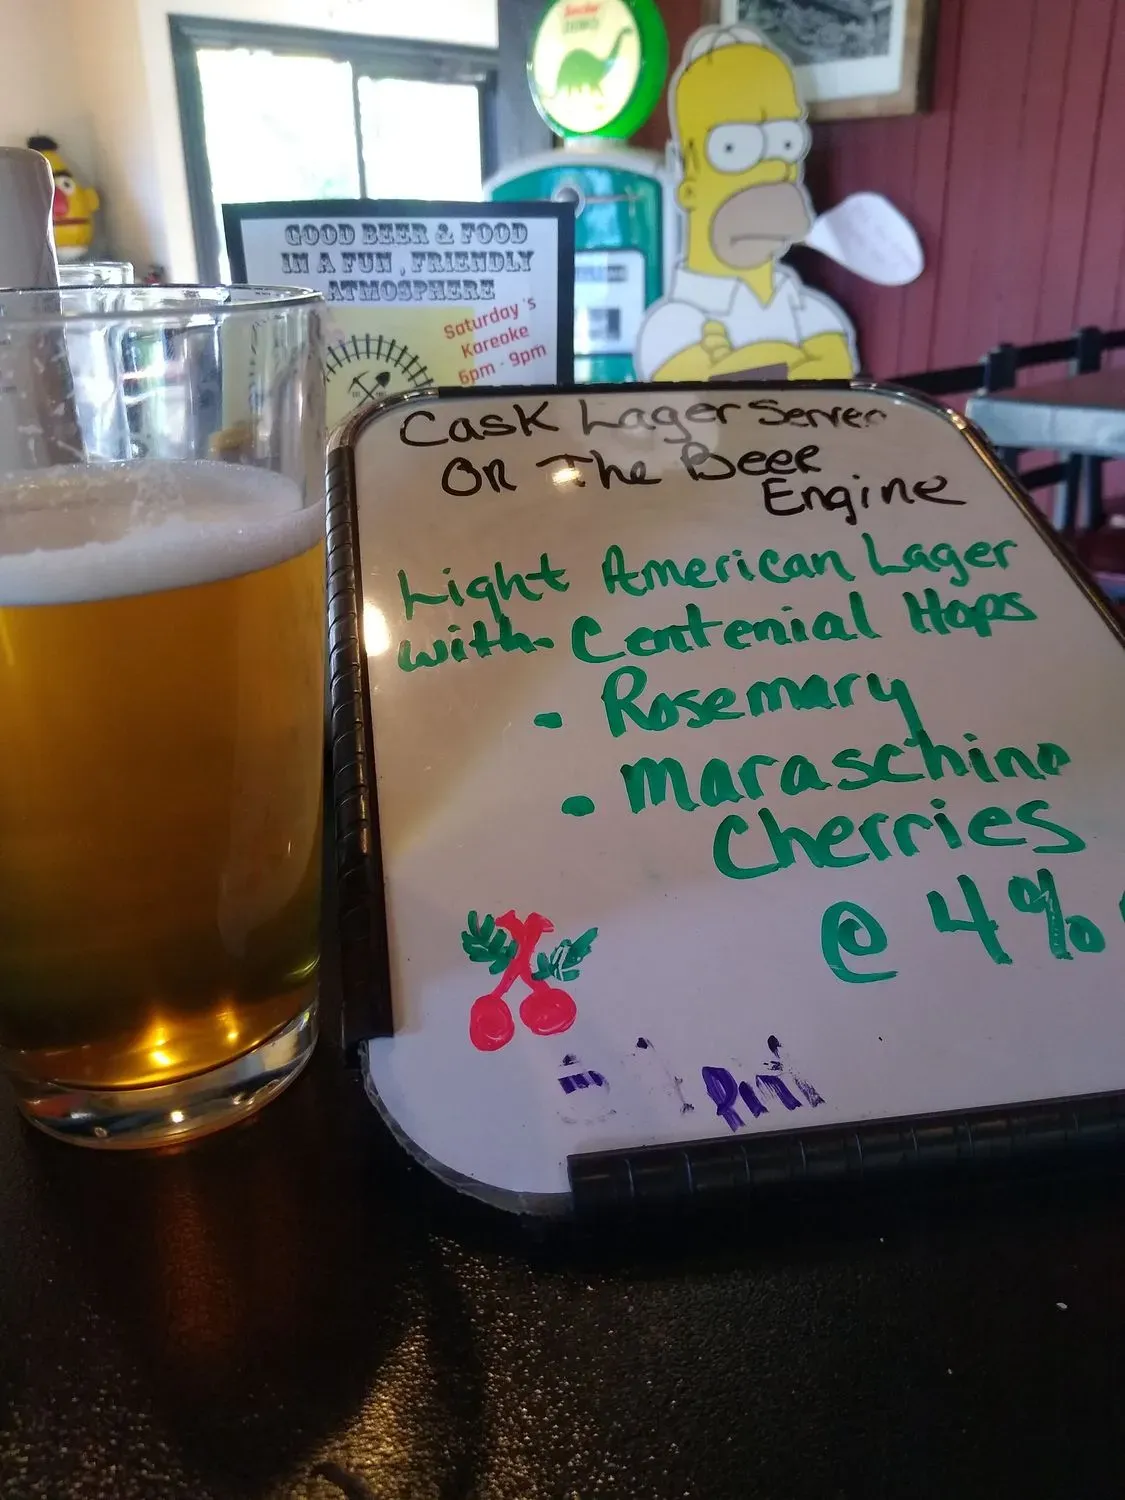 Sinclair
DINO
GOOD BEER & FOOD
IN A FUN , FRIENDLY
ATMOSPHERE
Saturday's
Kareoke
6pm - 9pm
Cask Lager Server
On The Beer
Engine
Light American Lager
with Centenial Hops
- Rosemary
• Maraschino
Cherries
@ 4%